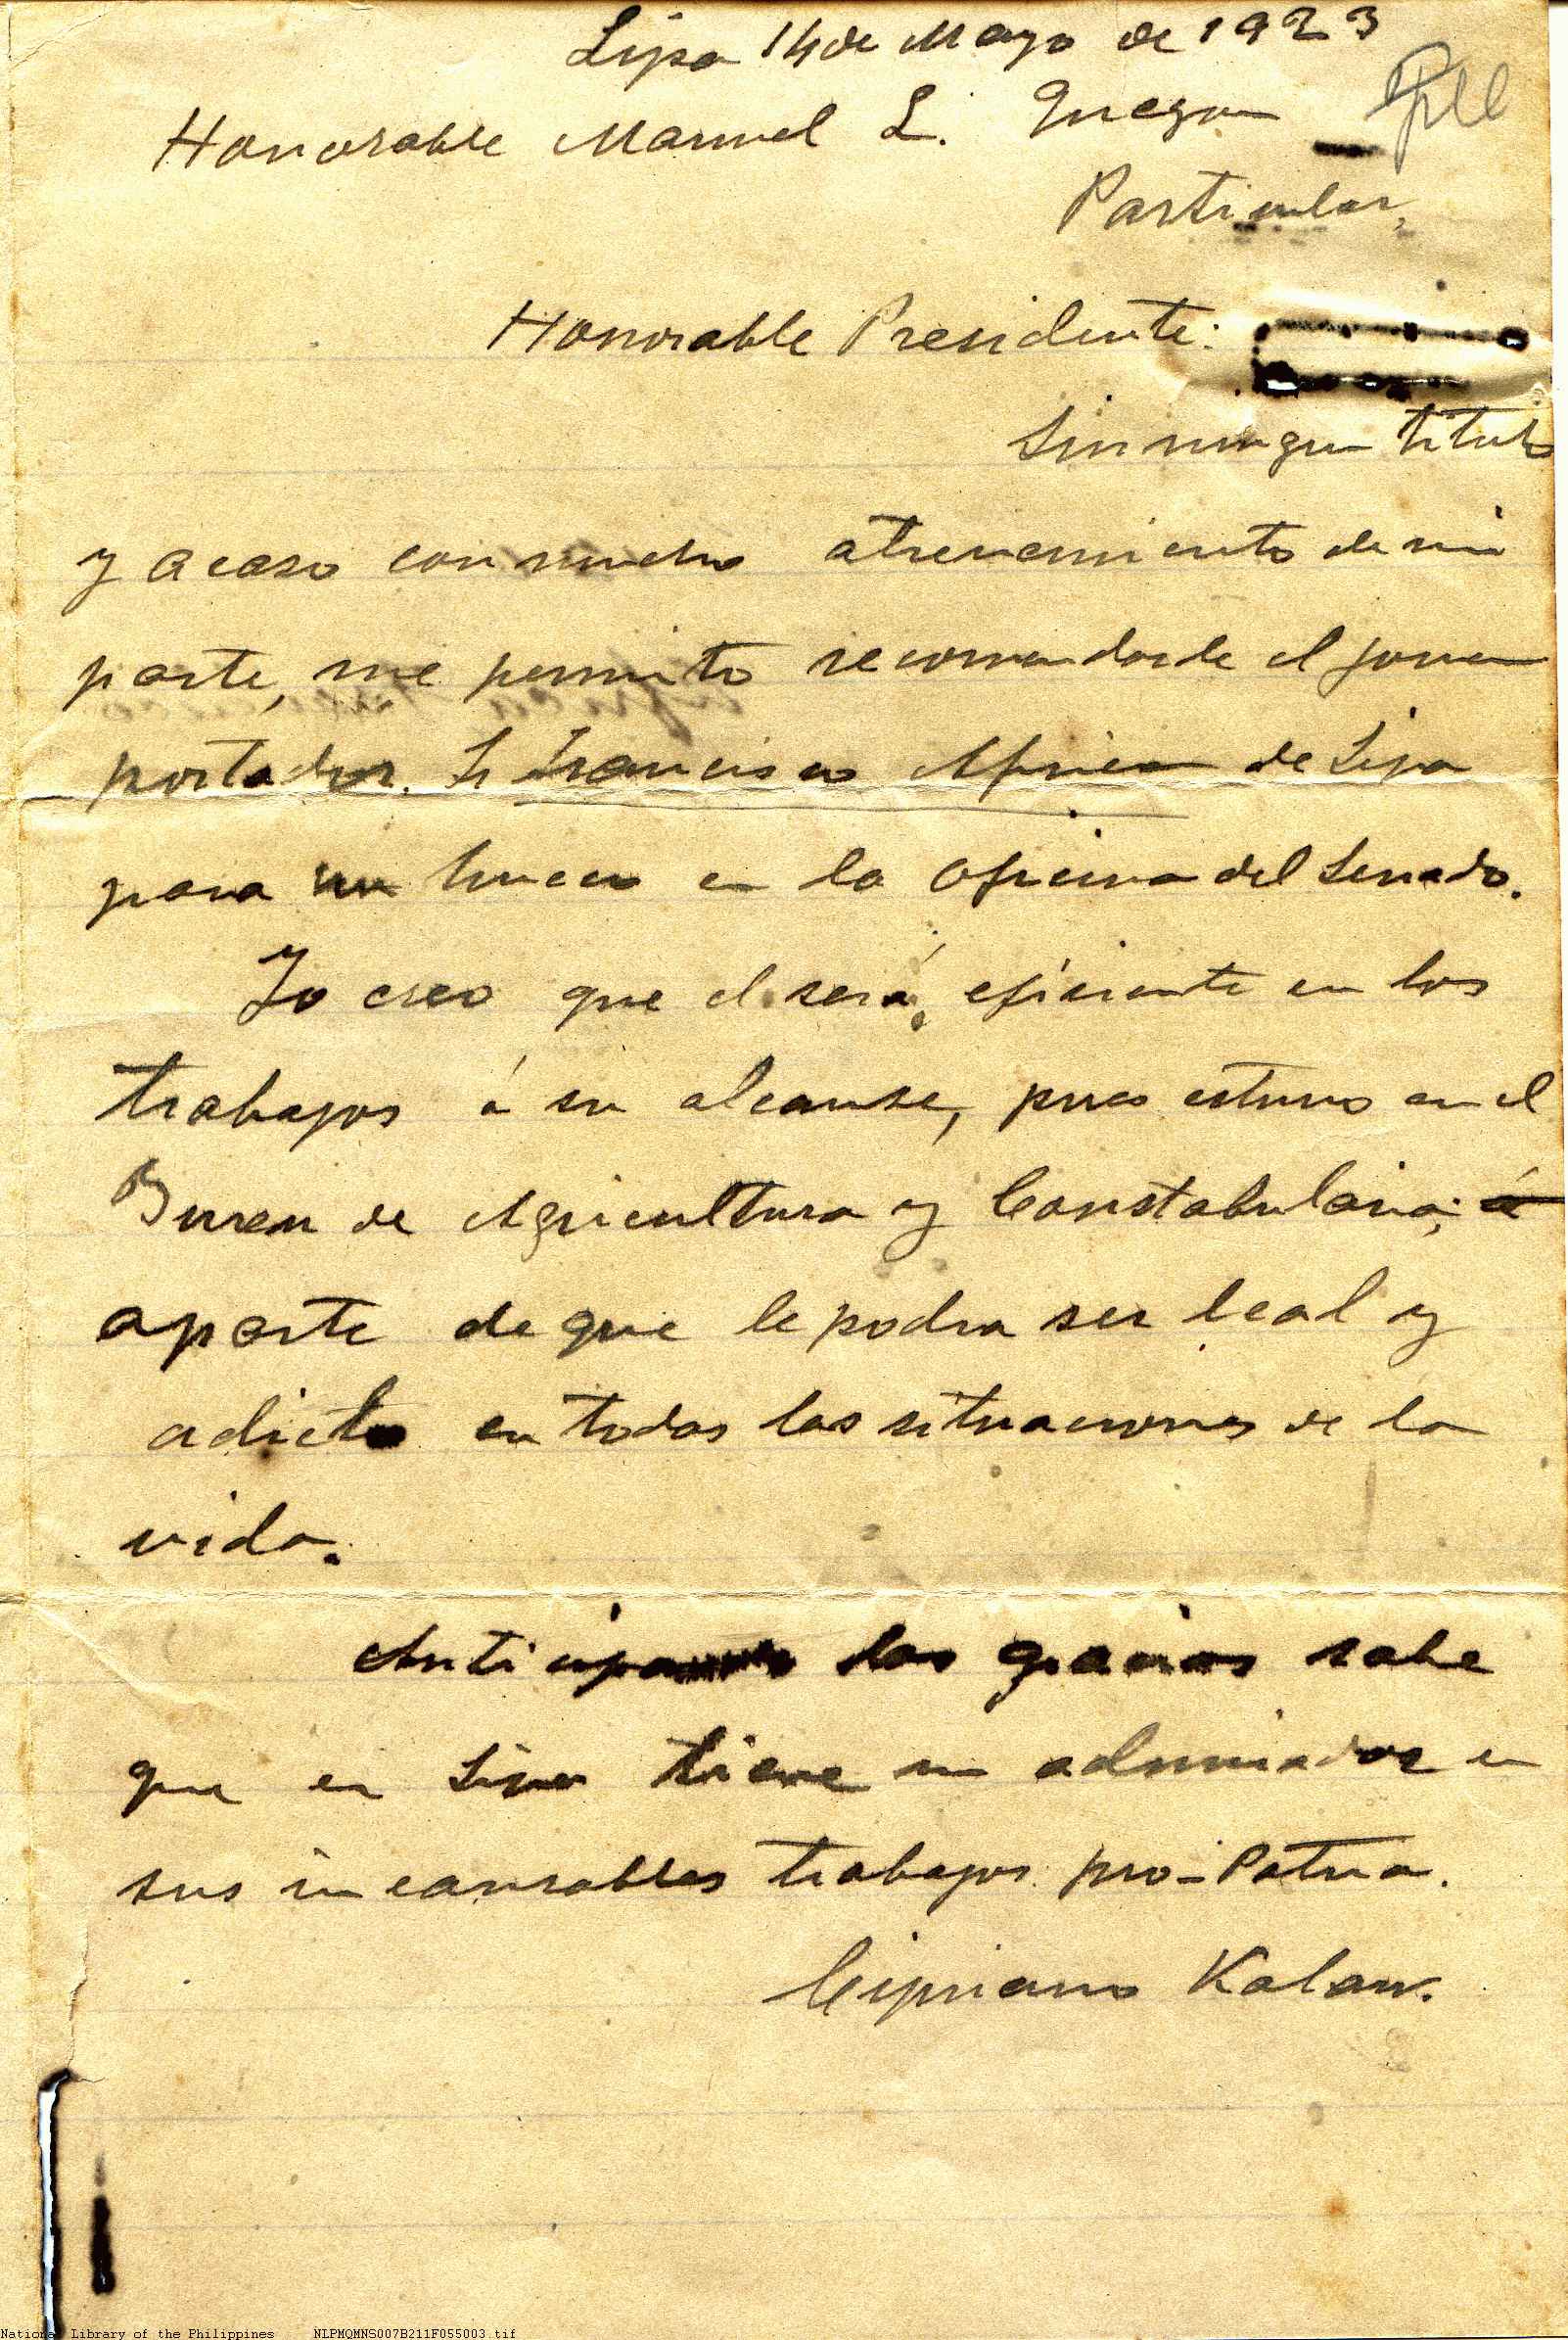 Lipa 14 de Mayo de 1923
Honorable Manuel L. Quezon
Particular,
Honorable Presidente:
Sin ningun titulo
y acaso con mucho atrevemiento de mi
parte, me permito recomendarle el joven
portador. Sr Francisco Africa de Lipa
para un hueco en la Oficina del Senado.
Yo creo que el será, eficiente en los
trabajos á su alcanse, pues estuvo en el
Bureu de Agricultura y Constabularia;
aparte de que le podra ser leal y
adicto en todas las situaciones de la
vida.
las gracias sabe
que en Lipa tiene un admirador en
sus incansables trabajos pro-Patria.
Cipriano Kalaw.
National Library of the Philippines NLPMQMNS007B211F055003.tif